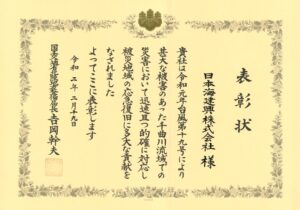 表彰状
日本海建興株式会社 様
貴社は令和元年台風第十九号により
甚大な被害のあった千曲川流域での
災害において迅速且つ的確に対応し
被災地域の応急復旧に多大な貢献を
なされました
よってここに表彰します
令和二年二月十九日
国土交通省北陸地方整備局長 吉岡幹夫